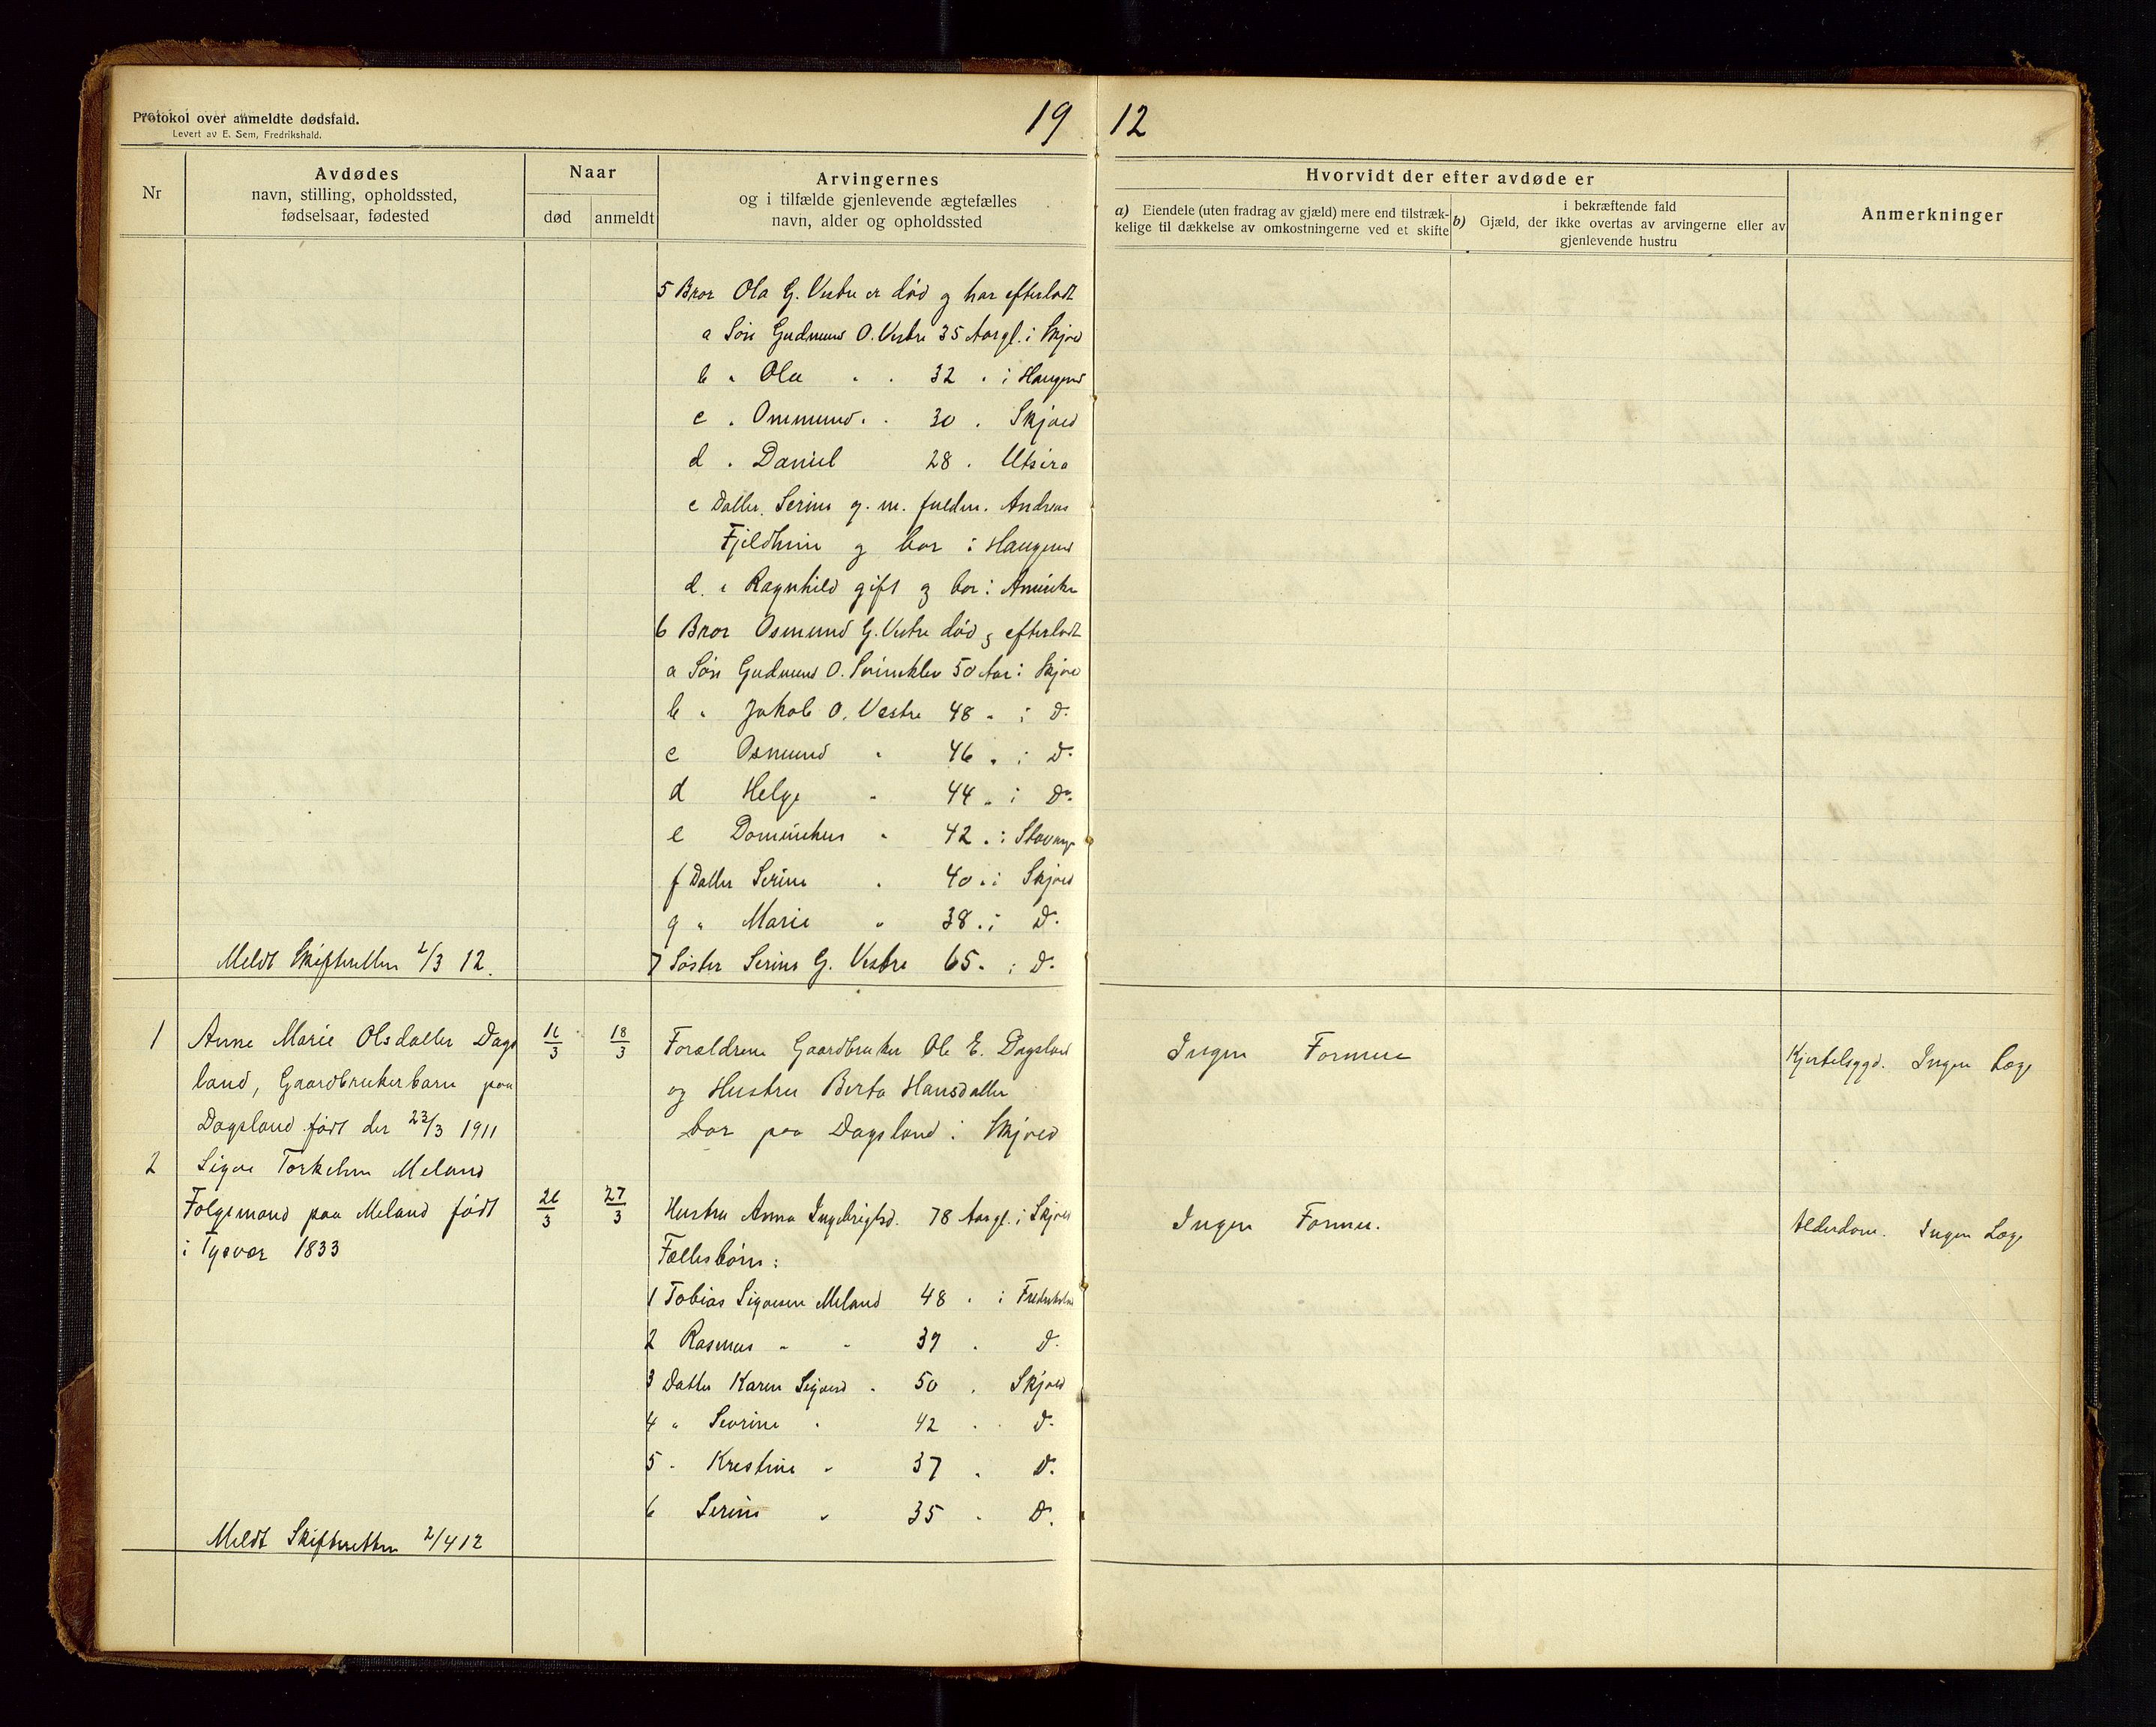 Protokol over anmeldte dødsfald.
Levert av E. Sem, Fredrikshald.
19 12
Nr
Avdødes
navn, stilling, opholdssted,
fødselsaar, fødested
Naar
død
anmeldt
Arvingernes
og i tilfælde gjenlevende ægtefælles
navn, alder og opholdssted
Hvorvidt der efter avdøde er
a) Eiendele (uten fradrag av gjæld) mere end tilstræk-
kelige til dækkelse av omkostningerne ved et skifte
i bekræftende fald
b) Gjæld, der ikke overtas av arvingerne eller av
gjenlevende hustru
Anmerkninger
5 Bror Ola G. Vestre er død og har efterladt
a Søn Gudmund O. Vestre 35 Aar gl. i Skjold
b " Ola " " 32 " i Haugesund
c " Ommund " " 30 " Skjold
d " Daniel 28 " Utsira
e Datter Serine g. m. fuldm. Andreas
Fjeldheim og bor i Haugesund
d. " Ragnhild gift og bor i Amerika
6 Bror Osmund G. Vestre død og efterladt
a Søn Gudmund O. 50 Aar i Skjold
b " Jakob O. Vestre 48 " i Do
c Osmund " 46 " i Do
d Helge " 44 " i Do
e Dominikus " 42 " i Stavanger
f Datter Serine " 40 " i Skjold
g " Marie " 38 " i Do
7 Søster Serine G. Vestre 65 " i Do
Meldt Skifteretten 2/3 12.
1 Anne Marie Olsdatter Dags
land, Gaardbrukerbarn paa
Dagsland født den 23/3 1911
16/3 18/3
Forældrene Gaardbruker Ole E. Dagsland
og Hustru Berta Hansdatter
bor paa Dagsland i Skjold
Ingen Formue
Kjertelsygd. Ingen Læge
2 Sigve Torkelsen Meland
Følgemand paa Meland født
i Tysvær 1833
26/3 27/3
Hustru Anna Ingebrigtsd. 78 Aar gl. i Skjold
Fællesbørn:
1 Tobias Sigvesen Meland 48 " i Fredrikshald
2 Rasmus " " 39 " Do
3 Datter Karen Sigvesd " 50 " Skjold
4 " Sevrine " 42 " " Do
5 " Kristine " 37 " Do
6 Serine " 35 " Do
Ingen Formue.
Alderdom. Ingen Læge
Meldt Skifteretten 2/4 12